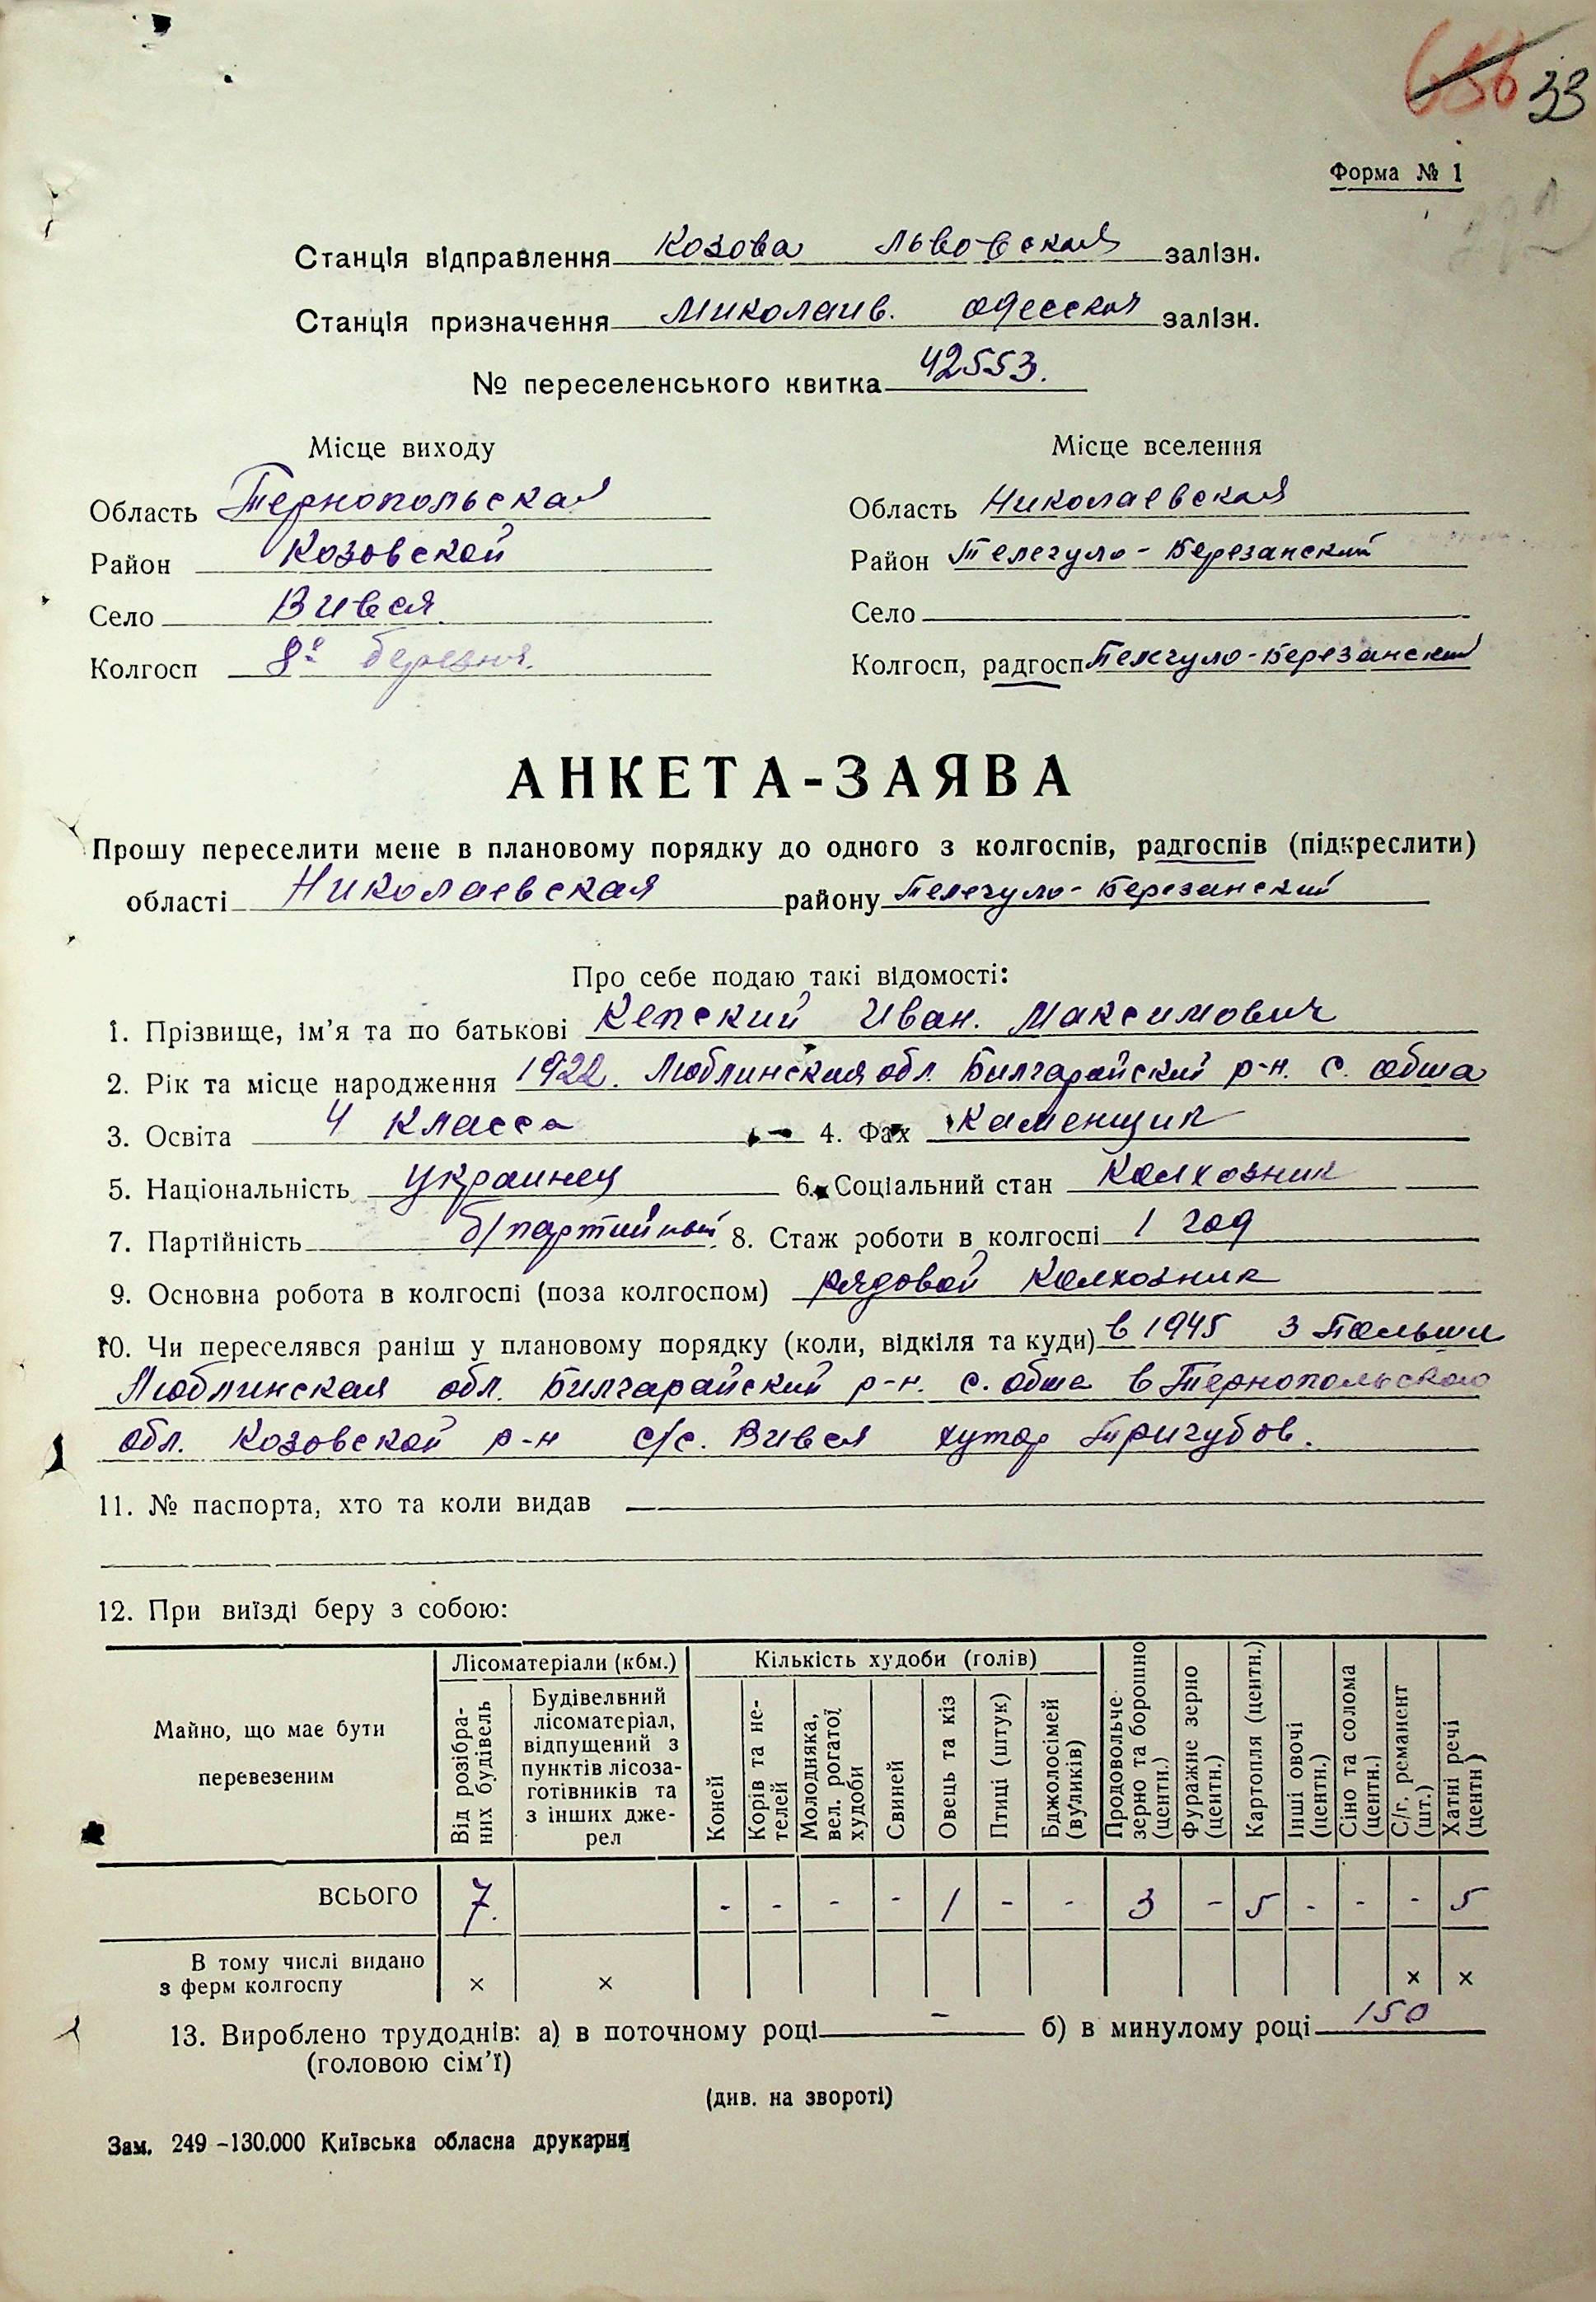 686 33
Форма № 1
Станція відправлення Козова Львовская залізн.
Станція призначення Миколаив. одесская залізн.
№ переселенського квитка 42553.
Місце виходу
Область Тернопольская
Район Козовской
Село Вився
Колгосп 8е березня.
Місце вселення
Область Николаевская
Район Телегуло-Березанский
Село
Колгосп, радгосп Телегуло-Березанский
АНКЕТА-ЗАЯВА
Прошу переселити мене в плановому порядку до одного з колгоспів, радгоспів (підкреслити)
області Николаевская району Телегуло-Березанский
Про себе подаю такі відомості:
1. Прізвище, ім'я та по батькові Кепский Иван. Максимович
2. Рік та місце народження 1922. Люблинская обл. Билгарайский р-н. с. обша
3. Освіта 4 класса 4. Фах Каменщик
5. Національність украинец 6. Соціальний стан Колхозник
7. Партійність б/партийный 8. Стаж роботи в колгоспі 1 год
9. Основна робота в колгоспі (поза колгоспом) рядовой колхозник
10. Чи переселявся раніш у плановому порядку (коли, відкіля та куди) в 1945 з Польши
Люблинская обл. Билгарайский р-н. с. обша в Тернопольскою
обл. Козовской р-н с/с. Вився хутор Тригубов.
11. № паспорта, хто та коли видав
12. При виїзді беру з собою:
Майно, що має бути перевезеним
Лісоматеріали (кбм.)
Від розібраних будівель
Будівельний лісоматеріал, відпущений з пунктів лісозаготівників та з інших джерел
Кількість худоби (голів)
Коней
Корів та нетелей
Молодняка, вел. рогатої худоби
Свиней
Овець та кіз
Птиці (штук)
Бджолосімей (вуликів)
Продовольче зерно та борошно (центн.)
Фуражне зерно (центн.)
Картопля (центн.)
Інші овочі (центн.)
Сіно та солома (центн.)
С/г. реманент (шт.)
Хатні речі (центн)
ВСЬОГО 7. - - - - 1 - - 3 - 5 - - - 5
В тому числі видано
з ферм колгоспу × × × ×
13. Вироблено трудоднів: а) в поточному році - б) в минулому році 150
(головою сім'ї)
(див. на звороті)
Зам. 249 -130.000 Київська обласна друкарня